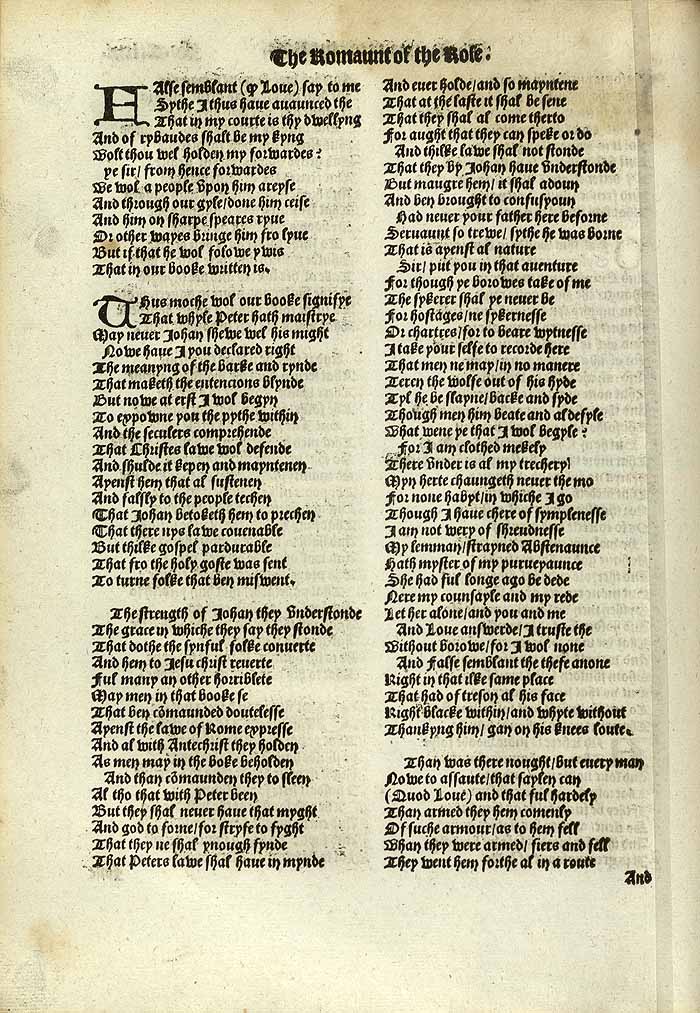 The Romaunt of the Rose.
FAlse semblant (qd Loue) say to me
Sythe I thus haue auaunced the
That in my courte is thy dwellyng
And of rybaudes shalt be my kyng
Wolt thou wel holden my forwardes?
ye sir/ from hence forwardes
We wol a people vpon him areyse
And through our gyle/done him ceise
And him on sharpe speares ryue
Or other wayes bringe him fro lyue
But if that he wol folowe ywis
That in our booke written is.
THus moche wol our booke signifye
That whyle Peter hath maistrye
May never Johan shewe wel his might
Nowe haue I you declared right
The meanyng of the barke and rynde
That maketh the entencions blynde
But nowe at erst I wol begyn
To expowne you the pythe within
And the seculers comprehende
That Christes lawe wol defende
And shulde it kepen and mayntenen
Ayenst hem that al sustenen
And falsly to the people techen
That Johan betoketh hem to prechen
That there nys lawe couenable
But thilke gospel pardurable
That fro the holy goste was sent
To turne folke that ben miswent.
The strength of Johan they vnderstonde
The grace in whiche they say they stonde
That dothe the synful folke conuerte
And hem to Jesu christ reuerte
Ful many an other horriblete
May men in that booke se
That ben cōmaunded doutelesse
Ayenst the lawe of Rome expresse
And al with Antechrist they holden
As men may in the boke beholden
And than cōmaunden they to sleen
Al tho that with Peter been
But they shal neuer haue that myght
And god to forne/for stryfe to fyght
That they ne shal ynough fynde
That Peters lawe shal haue in mynde
And euer holde/and so mayntene
That at the laste it shal be sene
That they shal al come therto
For aught that they can speke or do
And thilke lawe shal not stonde
That they by Johan haue vnderstonde
But maugre hem/ it shal adoun
And ben brought to confusyoun
Had neuer your father here beforne
Seruaunt so trewe/ sythe he was borne
That is ayenst al nature
Sir/ put you in that auenture
For though ye borowes take of me
The sykerer shal ye neuer be
For hostages/ne sykernesse
Or chartres/for to beare wytnesse
I take your selfe to recorde here
That men ne may/in no manere
Teren the wolfe out of his hyde
Tyl he be slayne/backe and syde
Though men him beate and al defyle
What wene ye that I wol begyle?
For I am clothed mekely
There vnder is al my trechery
Myn herte chaungeth neuer the mo
For none habyt/in whiche I go
Though I haue chere of symplenesse
I am not wery of shreudnesse
My lemman/strayned Abstenaunce
Hath myster of my purueyaunce
She had ful longe ago be dede
Nere my counsayle and my rede
Let her alone/and you and me
And Loue answerde/I truste the
Without borowe/for I wol none
And False semblant the thefe anone
Right in that ilke same place
That had of treson al his face
Right blacke within/and whyte without
Thankyng him/ gan on his knees loute.
Than was there nought/but euery man
Nowe to assaute/that saylen can
(Quod Loue) and that ful hardely
Than armed they hem comenly
Of suche armour/as to hem fell
Whan they were armed/ fiers and fell
They went hem forthe al in a route
And